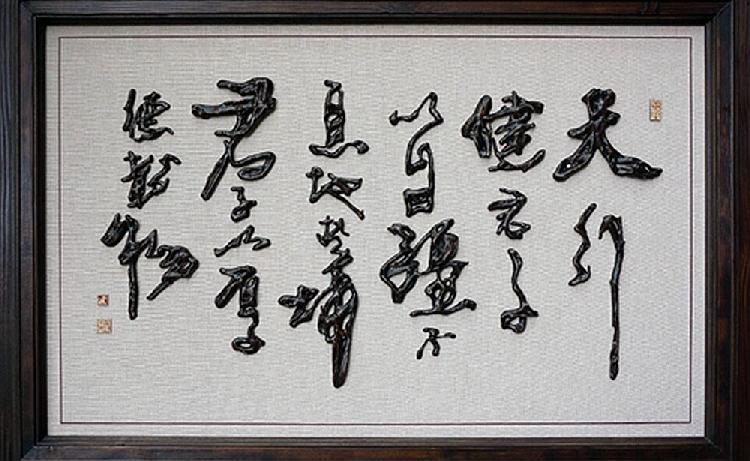 天行
健君子
以自强不
息地势坤
君子以厚
德載物